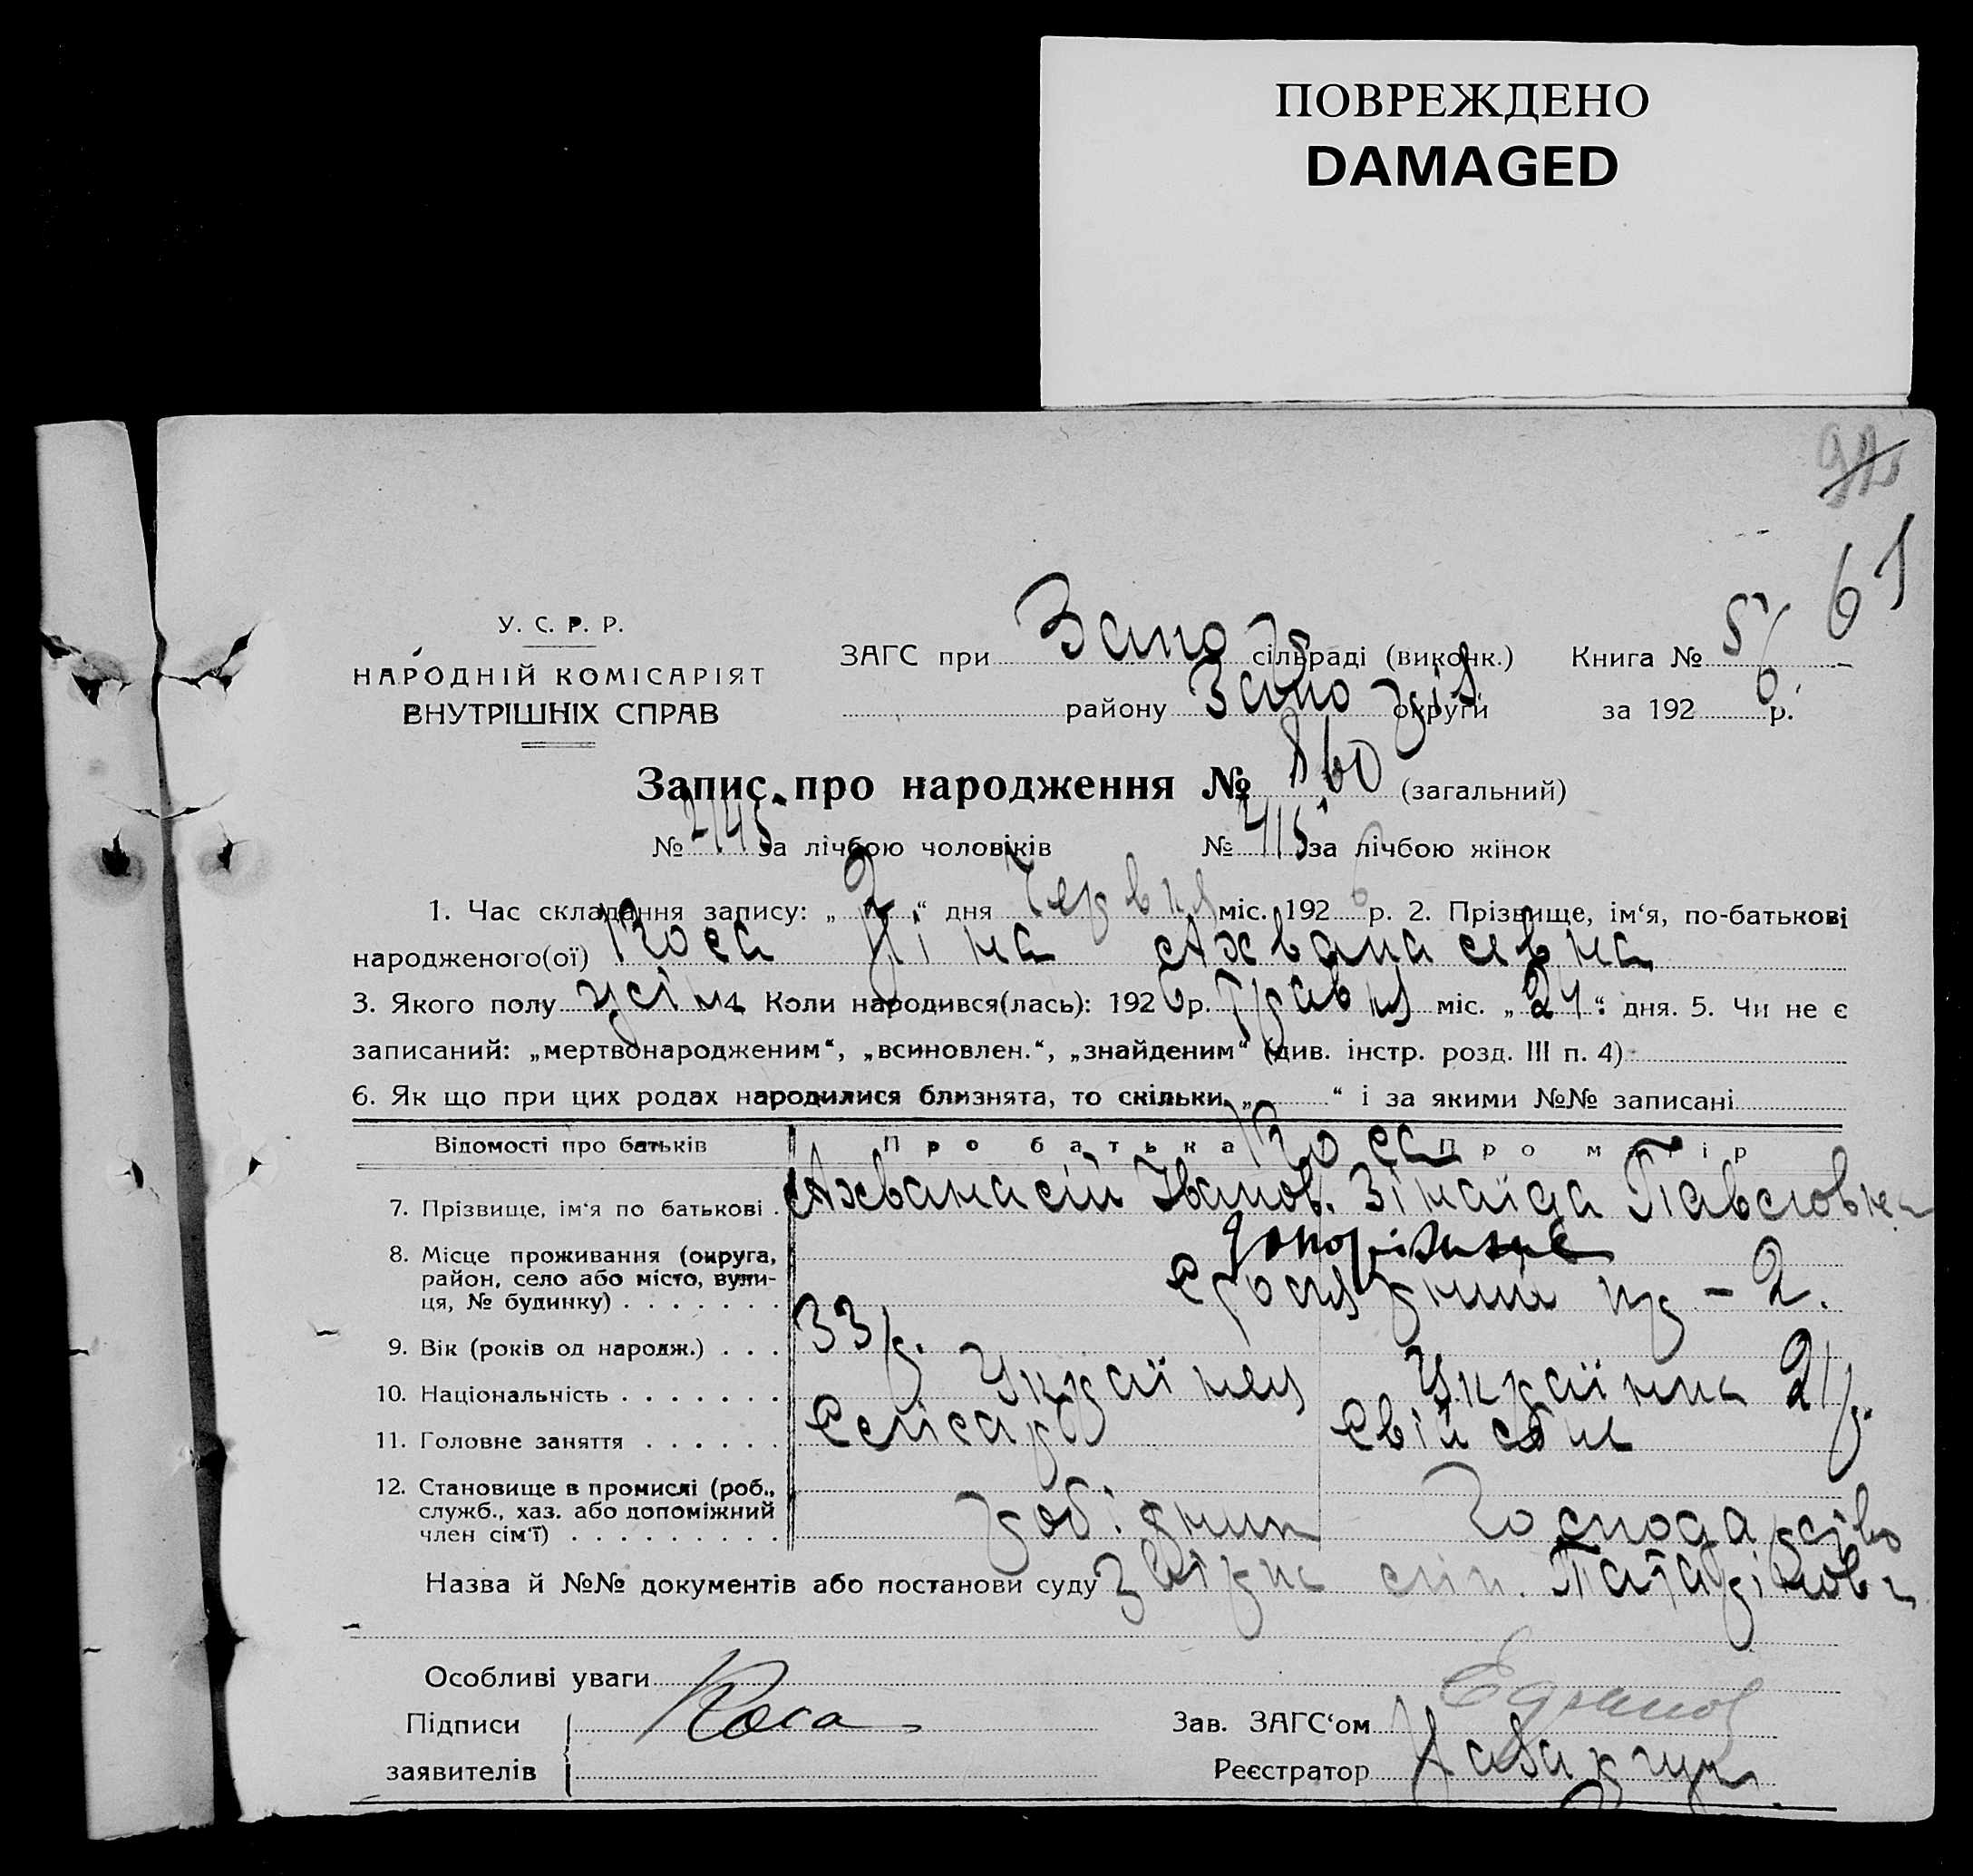 ПОВРЕЖДЕНО
DAMAGED
61
У. С. Р. Р.
НАРОДНІЙ КОМІСАРІЯТ
ВНУТРІШНІХ СПРАВ
ЗАГС при Запоріз сільраді (виконк.) Книга № 5/
району Запоріз округи за 1926 р.
Запис про народження № 860 (загальний)
№ 445 за лічбою чоловіків № 415 за лічбою жінок
1. Час складання запису: „2“ дня Червня міс. 1926 р. 2. Прізвище, ім‘я, по-батькові
народженого(ої) Коса Ніна Ахванасієвна
3. Якого полу 4. Коли народився(лась): 1926 р. Травня міс. „24“ дня. 5. Чи не є
записаний: „мертвонародженим“, „всиновлен.“, „знайденим“ (див. інстр. розд. III п. 4)
6. Як що при цих родах народилися близнята, то скільки „ “ і за якими №№ записані
Відомості про батьків Про батька Коса Про матір
7. Прізвище, ім‘я по батькові . Ахванасій Іванов. Зінаїда Павловна
8. Місце проживання (округа, район, село або місто, вулиця, № будинку) . . . . . . . Запоріжжє
пр - 2.
9. Вік (років од народж.) . . . 33 р.
10. Національність . . . . . . . Українец Українка 21 р.
11. Головне заняття . . . . . . Слісарь Свійськ
12. Становище в промислі (роб., служб., хаз. або допоміжний член сім‘ї) . . . . . . . . . робітник Господарство
Назва й №№ документів або постанови суду
Особливі уваги
Підписи Коса Зав. ЗАГС‘ом
заявителів Реєстратор